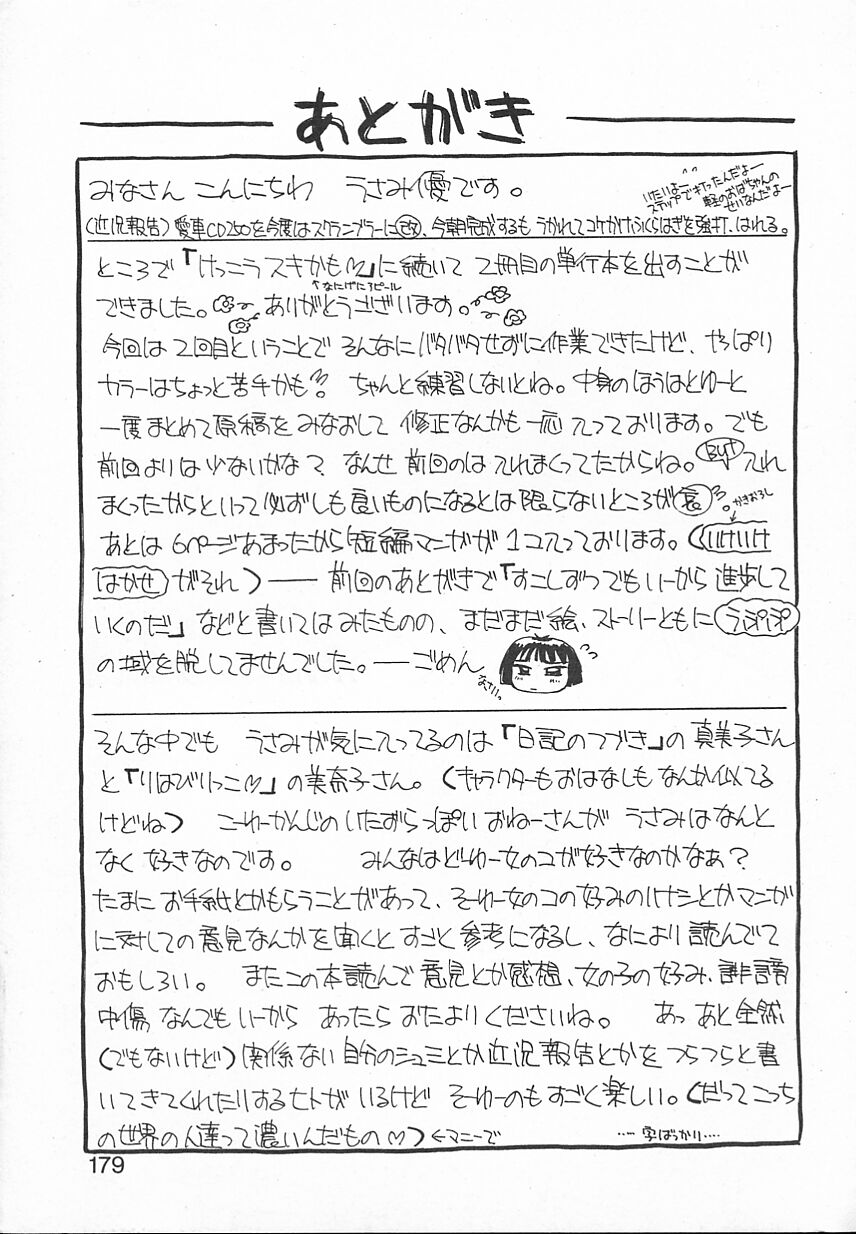 あとがき
みなさん こんにちわ うさみ優です。
いたいよー
ステップで打ったんだよー
軽のおばちゃんの
せいなんだよー
(近況報告) 愛車CD250を今度はスクランブラーに改、今朝完成するも うかれてコケかけふくらはぎを強打、はれる。
ところで「けっこうスキかも♡」に続いて 2冊目の単行本を出すことが
↑なにげにアピール
できました。 ありがとうございます。
今回は2回目ということで そんなにバタバタせずに作業できたけど、やっぱり
カラーはちょっと苦手かも ちゃんと練習しないとね。中身のほうはとゆーと
一度まとめて原稿を みなおして 修正なんかも一応入っております。でも
前回よりは少ないかな? なんせ前回のは入れまくってたからね。But 入れ
まくったからといって必ずしも良いものになるとは限らないところが哀。
かきおろし
あとは6ページあまったから短編マンガが1コ入っております。(いけいけ
はかせがそれ) ── 前回のあとがきで「すこしずつでもいーから進歩して
いくのだ」などと書いてはみたものの、まだまだ絵、ストーリーともにうぷぷ
の域を脱してませんでした。──ごめん
なさい。
そんな中でも うさみが気に入ってるのは「日記のつづき」の真美子さん
と「りはびりっこ♡」の美奈子さん。(キャラクターもおはなしもなんか似てる
けどね) こーゆーかんじのいたずらっぽいおねーさんが うさみはなんと
なく好きなのです。 みんなはどーゆー女のコが好きなのかなぁ?
たまにお手紙とかもらうことがあって、そーゆー女のコの好みのハナシとかマンガ
に対しての意見なんかを聞くとすごく参考になるし、なにより読んでて
おもしろい。 またこの本読んで意見とか感想、女の子の好み、誹謗
中傷なんでもいーから あったらおたよりくださいね。 あっ あと全然
(でもないけど)関係ない自分のシュミとか近況報告とかをつらつらと書
いてきてくれたりするヒトがいるけど そーゆーのもすごく楽しい。(だってこっち
の世界の人達って濃いんだもの♡) ←マニーで
…字ばっかり…
179